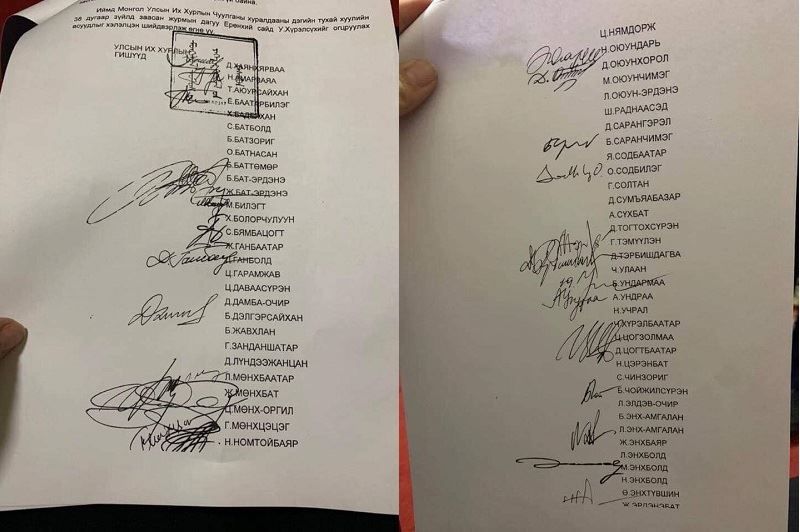 Иймд Монгол Улсын Их Хурлын Чуулганы хуралдааны дэгийн тухай хуулийн
38 дугаар зүйлд заасан журмын дагуу Ерөнхий сайд У.Хүрэлсүхийг огцруулах
асуудлыг хэлэлцэн шийдвэрлэж өгнө үү.
УЛСЫН ИХ ХУРЛЫН
ГИШҮҮД
Д.ХАЯНХЯРВАА
Н.АМАРЗАЯА
Т.АЮУРСАЙХАН
Ё.БААТАРБИЛЭГ
Х.БАДЕЛХАН
С.БАТБОЛД
Б.БАТЗОРИГ
О.БАТНАСАН
Б.БАТТӨМӨР
Б.БАТ-ЭРДЭНЭ
Ж.БАТ-ЭРДЭНЭ
М.БИЛЭГТ
Х.БОЛОРЧУЛУУН
С.БЯМБАЦОГТ
Ж.ГАНБААТАР
Д.ГАНБОЛД
Ц.ГАРАМЖАВ
Ц.ДАВААСҮРЭН
Д.ДАМБА-ОЧИР
Б.ДЭЛГЭРСАЙХАН
Б.ЖАВХЛАН
Г.ЗАНДАНШАТАР
Д.ЛҮНДЭЭЖАНЦАН
Л.МӨНХБААТАР
Ж.МӨНХБАТ
Ц.МӨНХ-ОРГИЛ
Г.МӨНХЦЭЦЭГ
Н.НОМТОЙБАЯР
Ц.НЯМДОРЖ
Н.ОЮУНДАРЬ
Д.ОЮУНХОРОЛ
М.ОЮУНЧИМЭГ
Л.ОЮУН-ЭРДЭНЭ
Ш.РАДНААСЭД
Д.САРАНГЭРЭЛ
Б.САРАНЧИМЭГ
Я.СОДБААТАР
О.СОДБИЛЭГ
Г.СОЛТАН
Д.СУМЪЯАБАЗАР
А.СҮХБАТ
Д.ТОГТОХСҮРЭН
Г.ТЭМҮҮЛЭН
Д.ТЭРБИШДАГВА
Ч.УЛААН
Б.УНДАРМАА
А.УНДРАА
Н.УЧРАЛ
Ч.ХҮРЭЛБААТАР
Ц.ЦОГЗОЛМАА
Д.ЦОГТБААТАР
Н.ЦЭРЭНБАТ
С.ЧИНЗОРИГ
Б.ЧОЙЖИЛСҮРЭН
Л.ЭЛДЭВ-ОЧИР
Б.ЭНХ-АМГАЛАН
Л.ЭНХ-АМГАЛАН
Ж.ЭНХБАЯР
Л.ЭНХБОЛД
М.ЭНХБОЛД
Н.ЭНХБОЛД
Ө.ЭНХТҮВШИН
Ж.ЭРДЭНЭБАТ